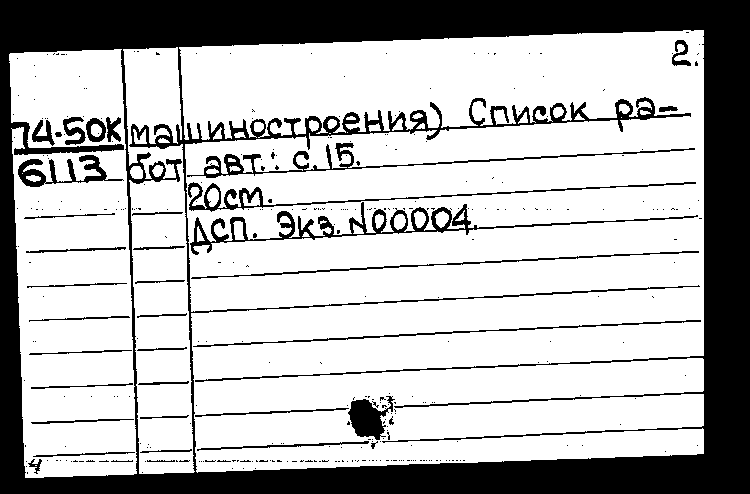 2.
74-50К машиностроения). Список ра-
6113 бот авт.: с.15.
20см.
ДСП. Экз. N00004.
4